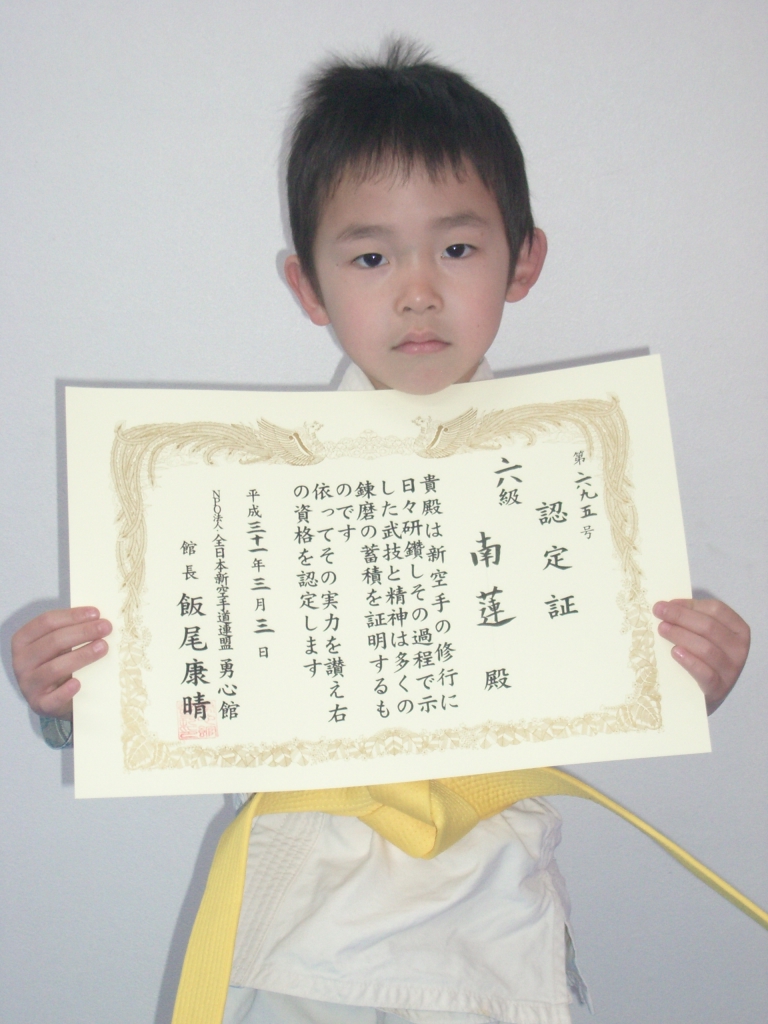 第六九五号
認定証
六級 南蓮 殿
貴殿は新空手の修行に
日々研鑽しその過程で示
した武技と精神は多くの
錬磨の蓄積を証明するも
のです
依ってその実力を讃え右
の資格を認定します
平成三十一年三月三日
NPO法人 全日本新空手道連盟 勇心館
館長 飯尾康晴